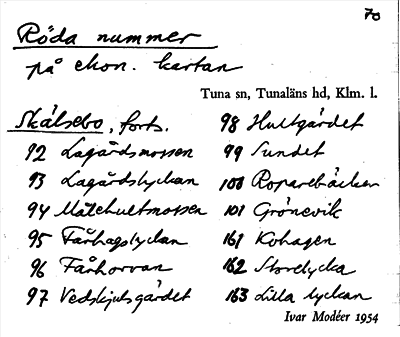 70
Röda nummer
på ekon. kartan
Tuna sn, Tunaläns hd, Klm. l.
Skälsebo, forts.
92 Lagårdsmossen
93 Lagårdslyckan
94 Mälehultmossen
95 Fårhagslyckan
96 Fårhorvan
97 Vedskjulsgärdet
98 Hultgärdet
99 Sundet
100 Roparebäcken
101 Grönevik
161 Kohagen
162 Storelycka
163 Lilla lyckan
Ivar Modéer 1954